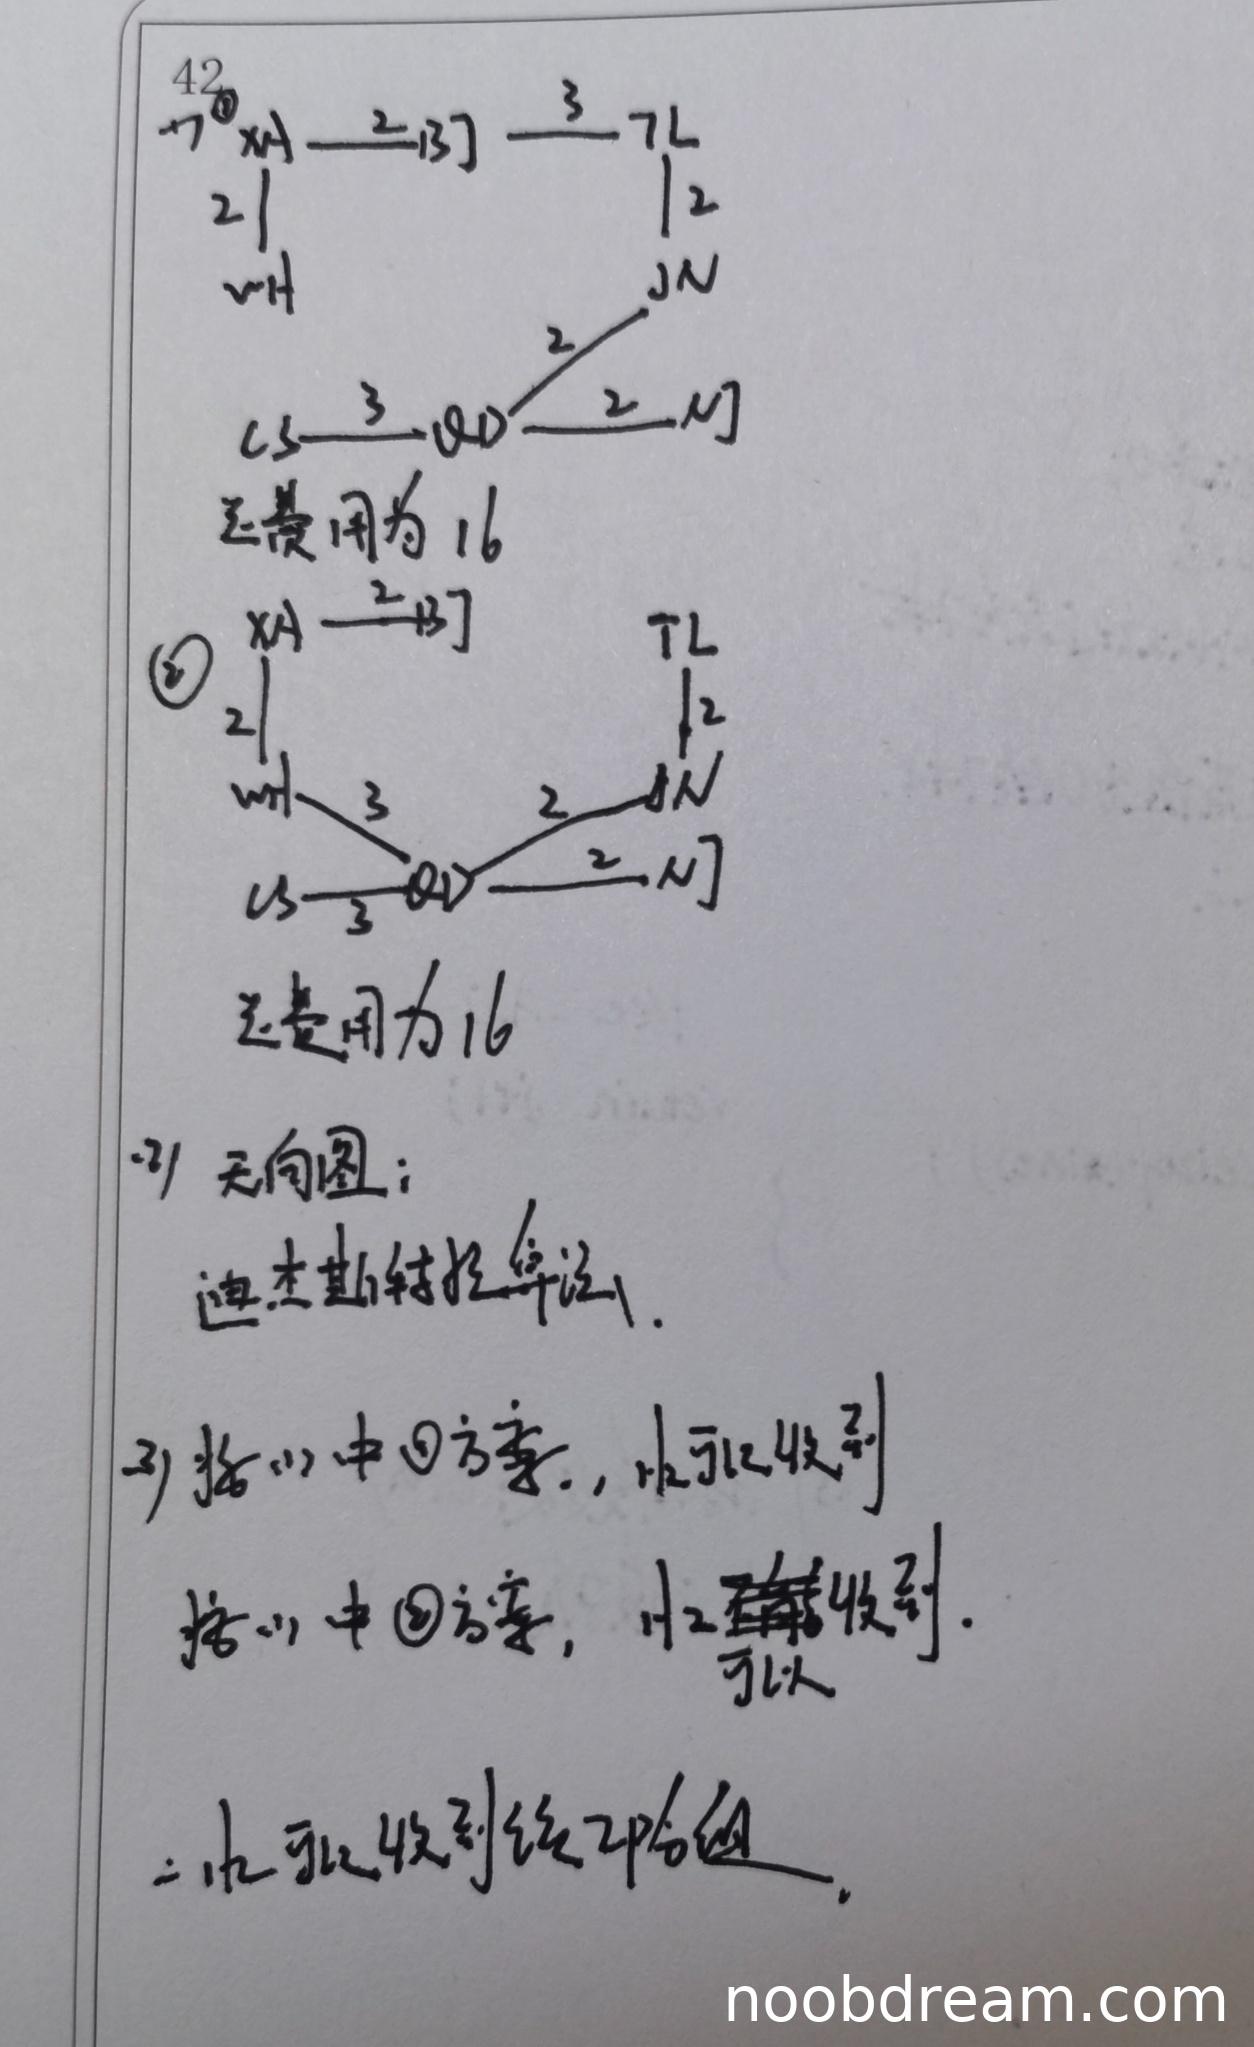 42
(1) ① XA 2 BJ 3 TL
2 2
WH JN
2
CS 3 QD 2 NJ
总费用为16
② XA 2 BJ TL
2 2
WH 3 2 JN
CS 3 QD 2 NJ
总费用为16
(2) 无向图：
迪杰斯特拉算法.
(3) 按(1)中①方案., H2可以收到
按(1)中②方案, H2可以收到.
∴H2可以收到
noobdream.com